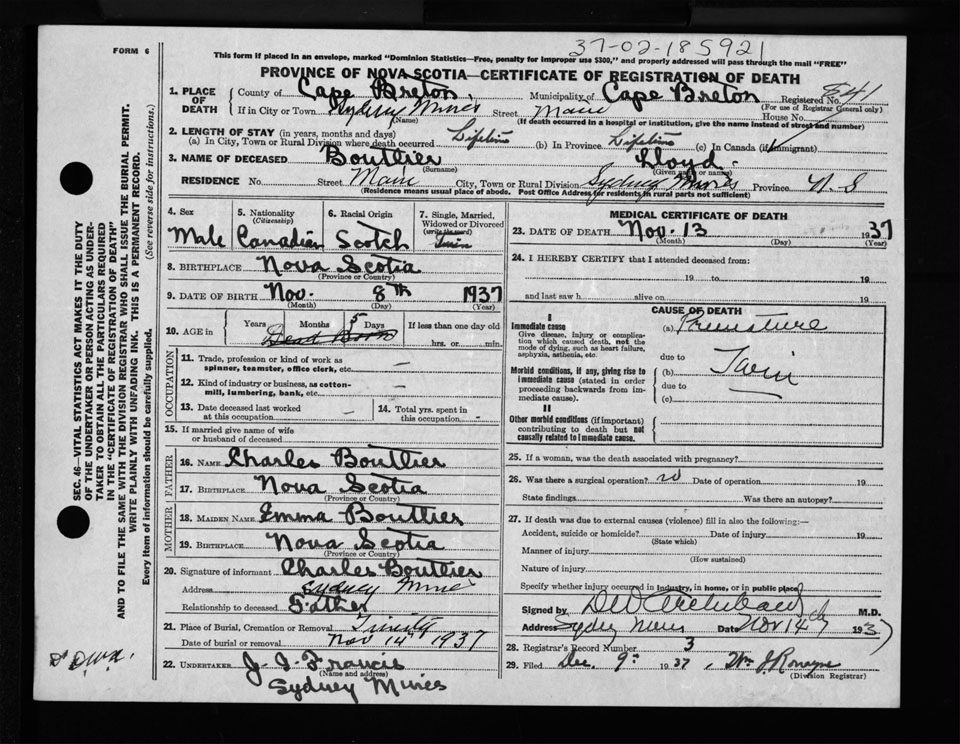 37-02-185921
FORM 6
This form if placed in an envelope, marked "Dominion Statistics—Free, penalty for improper use $300," and properly addressed will pass through the mail "FREE"
PROVINCE OF NOVA SCOTIA—CERTIFICATE OF REGISTRATION OF DEATH
1. PLACE OF DEATH
County of Cape Breton Municipality of Cape Breton Registered No.
(For use of Registrar General only)
If in City or Town Sydney Mines Street Main House No.
(Name) (If death occurred in a hospital or institution, give the name instead of street and number)
2. LENGTH OF STAY (in years, months and days)
(a) In City, Town or Rural Division where death occurred Lifetime (b) In Province Lifetime (c) In Canada (if immigrant)
3. NAME OF DECEASED Bouttier Lloyd.
(Surname) (Given name or names)
RESIDENCE No. Street Main City, Town or Rural Division Sydney Mines Province N.S
(Residence means usual place of abode. Post Office Address for residents in rural parts not sufficient)
4. Sex 5. Nationality (Citizenship) 6. Racial Origin 7. Single, Married, Widowed or Divorced (write the word)
Male Canadian Scotch Twin
8. BIRTHPLACE Nova Scotia
(Province or Country)
9. DATE OF BIRTH Nov. 8th 1937
(Month) (Day) (Year)
10. AGE in Years Months 5 Days If less than one day old
Dead Born hrs. or min.
OCCUPATION
11. Trade, profession or kind of work as spinner, teamster, office clerk, etc. —
12. Kind of industry or business, as cotton-mill, lumbering, bank, etc. —
13. Date deceased last worked at this occupation — 14. Total yrs. spent in this occupation -
15. If married give name of wife or husband of deceased
FATHER
16. NAME Charles Bouttier
17. BIRTHPLACE Nova Scotia
(Province or Country)
MOTHER
18. MAIDEN NAME Emma Bouttier
19. BIRTHPLACE Nova Scotia
(Province or Country)
20. Signature of informant Charles Bouttier
Address Sydney Mines
Relationship to deceased Father
21. Place of Burial, Cremation or Removal Trinity
Date of burial or removal Nov 14th 1937
22. UNDERTAKER J. J. Francis
(Name and address)
Sydney Mines
MEDICAL CERTIFICATE OF DEATH
23. DATE OF DEATH Nov. 13 1937
(Month) (Day) (Year)
24. I HEREBY CERTIFY that I attended deceased from:
19 to 19
and last saw h alive on 19
CAUSE OF DEATH
I
Immediate cause (a) Premature
Give disease, injury or complication which caused death, not the mode of dying, such as heart failure, asphyxia, asthenia, etc.
due to
Morbid conditions, if any, giving rise to immediate cause (stated in order proceeding backwards from immediate cause).
(b) Twin
due to
(c)
II
Other morbid conditions (if important) contributing to death but not causally related to immediate cause.
25. If a woman, was the death associated with pregnancy?
26. Was there a surgical operation? no Date of operation 19
State findings Was there an autopsy?
27. If death was due to external causes (violence) fill in also the following:—
Accident, suicide or homicide? Date of injury 19
(State which)
Manner of injury
(How sustained)
Nature of injury
Specify whether injury occurred in industry, in home, or in public place
Signed by M.D.
Address Sydney Mines Date Nov 14 1937
28. Registrar's Record Number 3
29. Filed Dec. 9th 1937
(Division Registrar)
SEC. 46—VITAL STATISTICS ACT MAKES IT THE DUTY
OF THE UNDERTAKER OR PERSON ACTING AS UNDER-
TAKER TO OBTAIN ALL THE PARTICULARS REQUIRED
IN THE "CERTIFICATE OF REGISTRATION OF DEATH"
AND TO FILE THE SAME WITH THE DIVISION REGISTRAR WHO SHALL ISSUE THE BURIAL PERMIT.
WRITE PLAINLY WITH UNFADING INK. THIS IS A PERMANENT RECORD.
Every item of information should be carefully supplied. (See reverse side for instructions.)